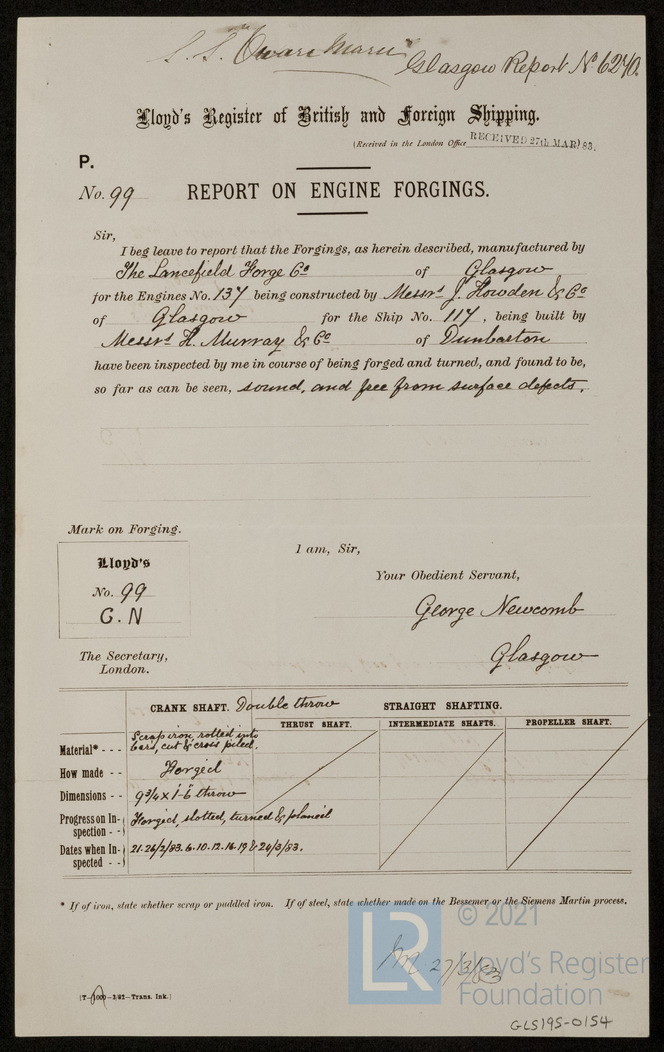 S. S. Owari Maru
Glasgow Report No 6270.
Lloyd's Register of British and Foreign Shipping.
(Received in the London Office RECEIVED 27th MAR) 83.
P.
No. 99 REPORT ON ENGINE FORGINGS.
Sir,
I beg leave to report that the Forgings, as herein described, manufactured by
The Lancefield Forge Co of Glasgow
for the Engines No. 137 being constructed by Messrs J. Howden & Co
of Glasgow for the Ship No. 117, being built by
Messrs H. Murray & Co of Dunbarton
have been inspected by me in course of being forged and turned, and found to be,
so far as can be seen, sound, and free from surface defects.
Mark on Forging.
Lloyd's
No. 99
G. N
I am, Sir,
Your Obedient Servant,
George Newcomb
Glasgow
The Secretary,
London.
CRANK SHAFT. Double throw STRAIGHT SHAFTING.
THRUST SHAFT. INTERMEDIATE SHAFTS. PROPELLER SHAFT.
Material* - - - Scrap iron, rolled into
bars, cut & cross piled.
How made - - Forged
Dimensions - - 9 3/4 x 1-6 throw
Progress on In-
spection - - Forged, slotted, turned & planed
Dates when In-
spected - - 21-26/2/83. 6. 10. 12. 16. 19 & 24/3/83.
* If of iron, state whether scrap or puddled iron. If of steel, state whether made on the Bessemer or the Siemens Martin process.
27/3/83
LR
© 2021
Lloyd's Register
Foundation
GLS195-0154